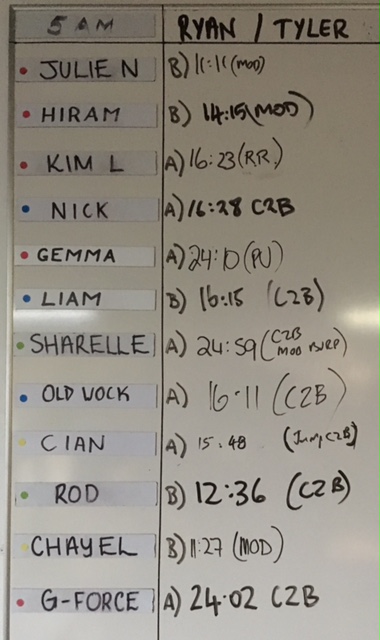 5 AM RYAN / TYLER
JULIE N B) 11:11 (MOD)
HIRAM B) 14:15 (MOD)
KIM L A) 16:23 (RR.)
NICK A) 16:28 C2B
GEMMA A) 24:10 (PU)
LIAM B) 16:15 (C2B)
SHARELLE A) 24:59 (C2B MOD
OLD A) 16:11 (C2B)
CIAN A) 15:48 (Jump C2B)
ROD B) 12:36 (C2B)
CHAYEL B) 11:27 (MOD)
G-FORCE A) 24:02 C2B